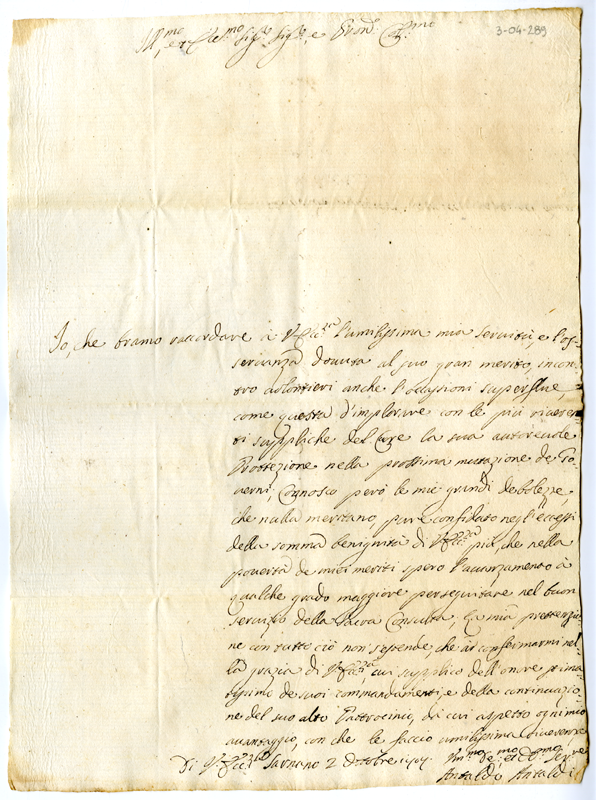 Ill.mo, et Ecc.mo Sig.re Sig.re, e Pron.e Col.mo
3-04-289
Io, che bramo raccordare à V. Ecc.za l'umilissima mia servitù, e l'os-
servanza dovuta al suo gran merito, incon-
tro volontieri anche l'occasioni superflue
come questa d'implorare con le più riveren-
ti suppliche del Core la sua autorevole
Protezione nella prossima mutazione de Go-
verni; Conosco però le mie grandi debolezze,
che nulla meritano, pure confidato negl'eccessi
della somma benignità di V. Ecc.za più, che nella
povertà de miei meriti spero l'avanzamento à
qualche grado maggiore per seguitare nel buon
servizio della Sacra Consulta, La mia pretenzio-
ne con tutto ciò non s'estende, che à confermarmi nel-
la grazia di V. Ecc.za cui supplico dell'onore
de suoi commandamenti, e della continuazio-
ne del suo alto Patrocinio, da cui aspetto ogni mio
avantaggio, con che le faccio umilissima riverenza
Di V. Ecc.za Sarnano 2 Ottobre
Um.mo De.mo et Ob.mo Ser.re
Antaldo Antaldi